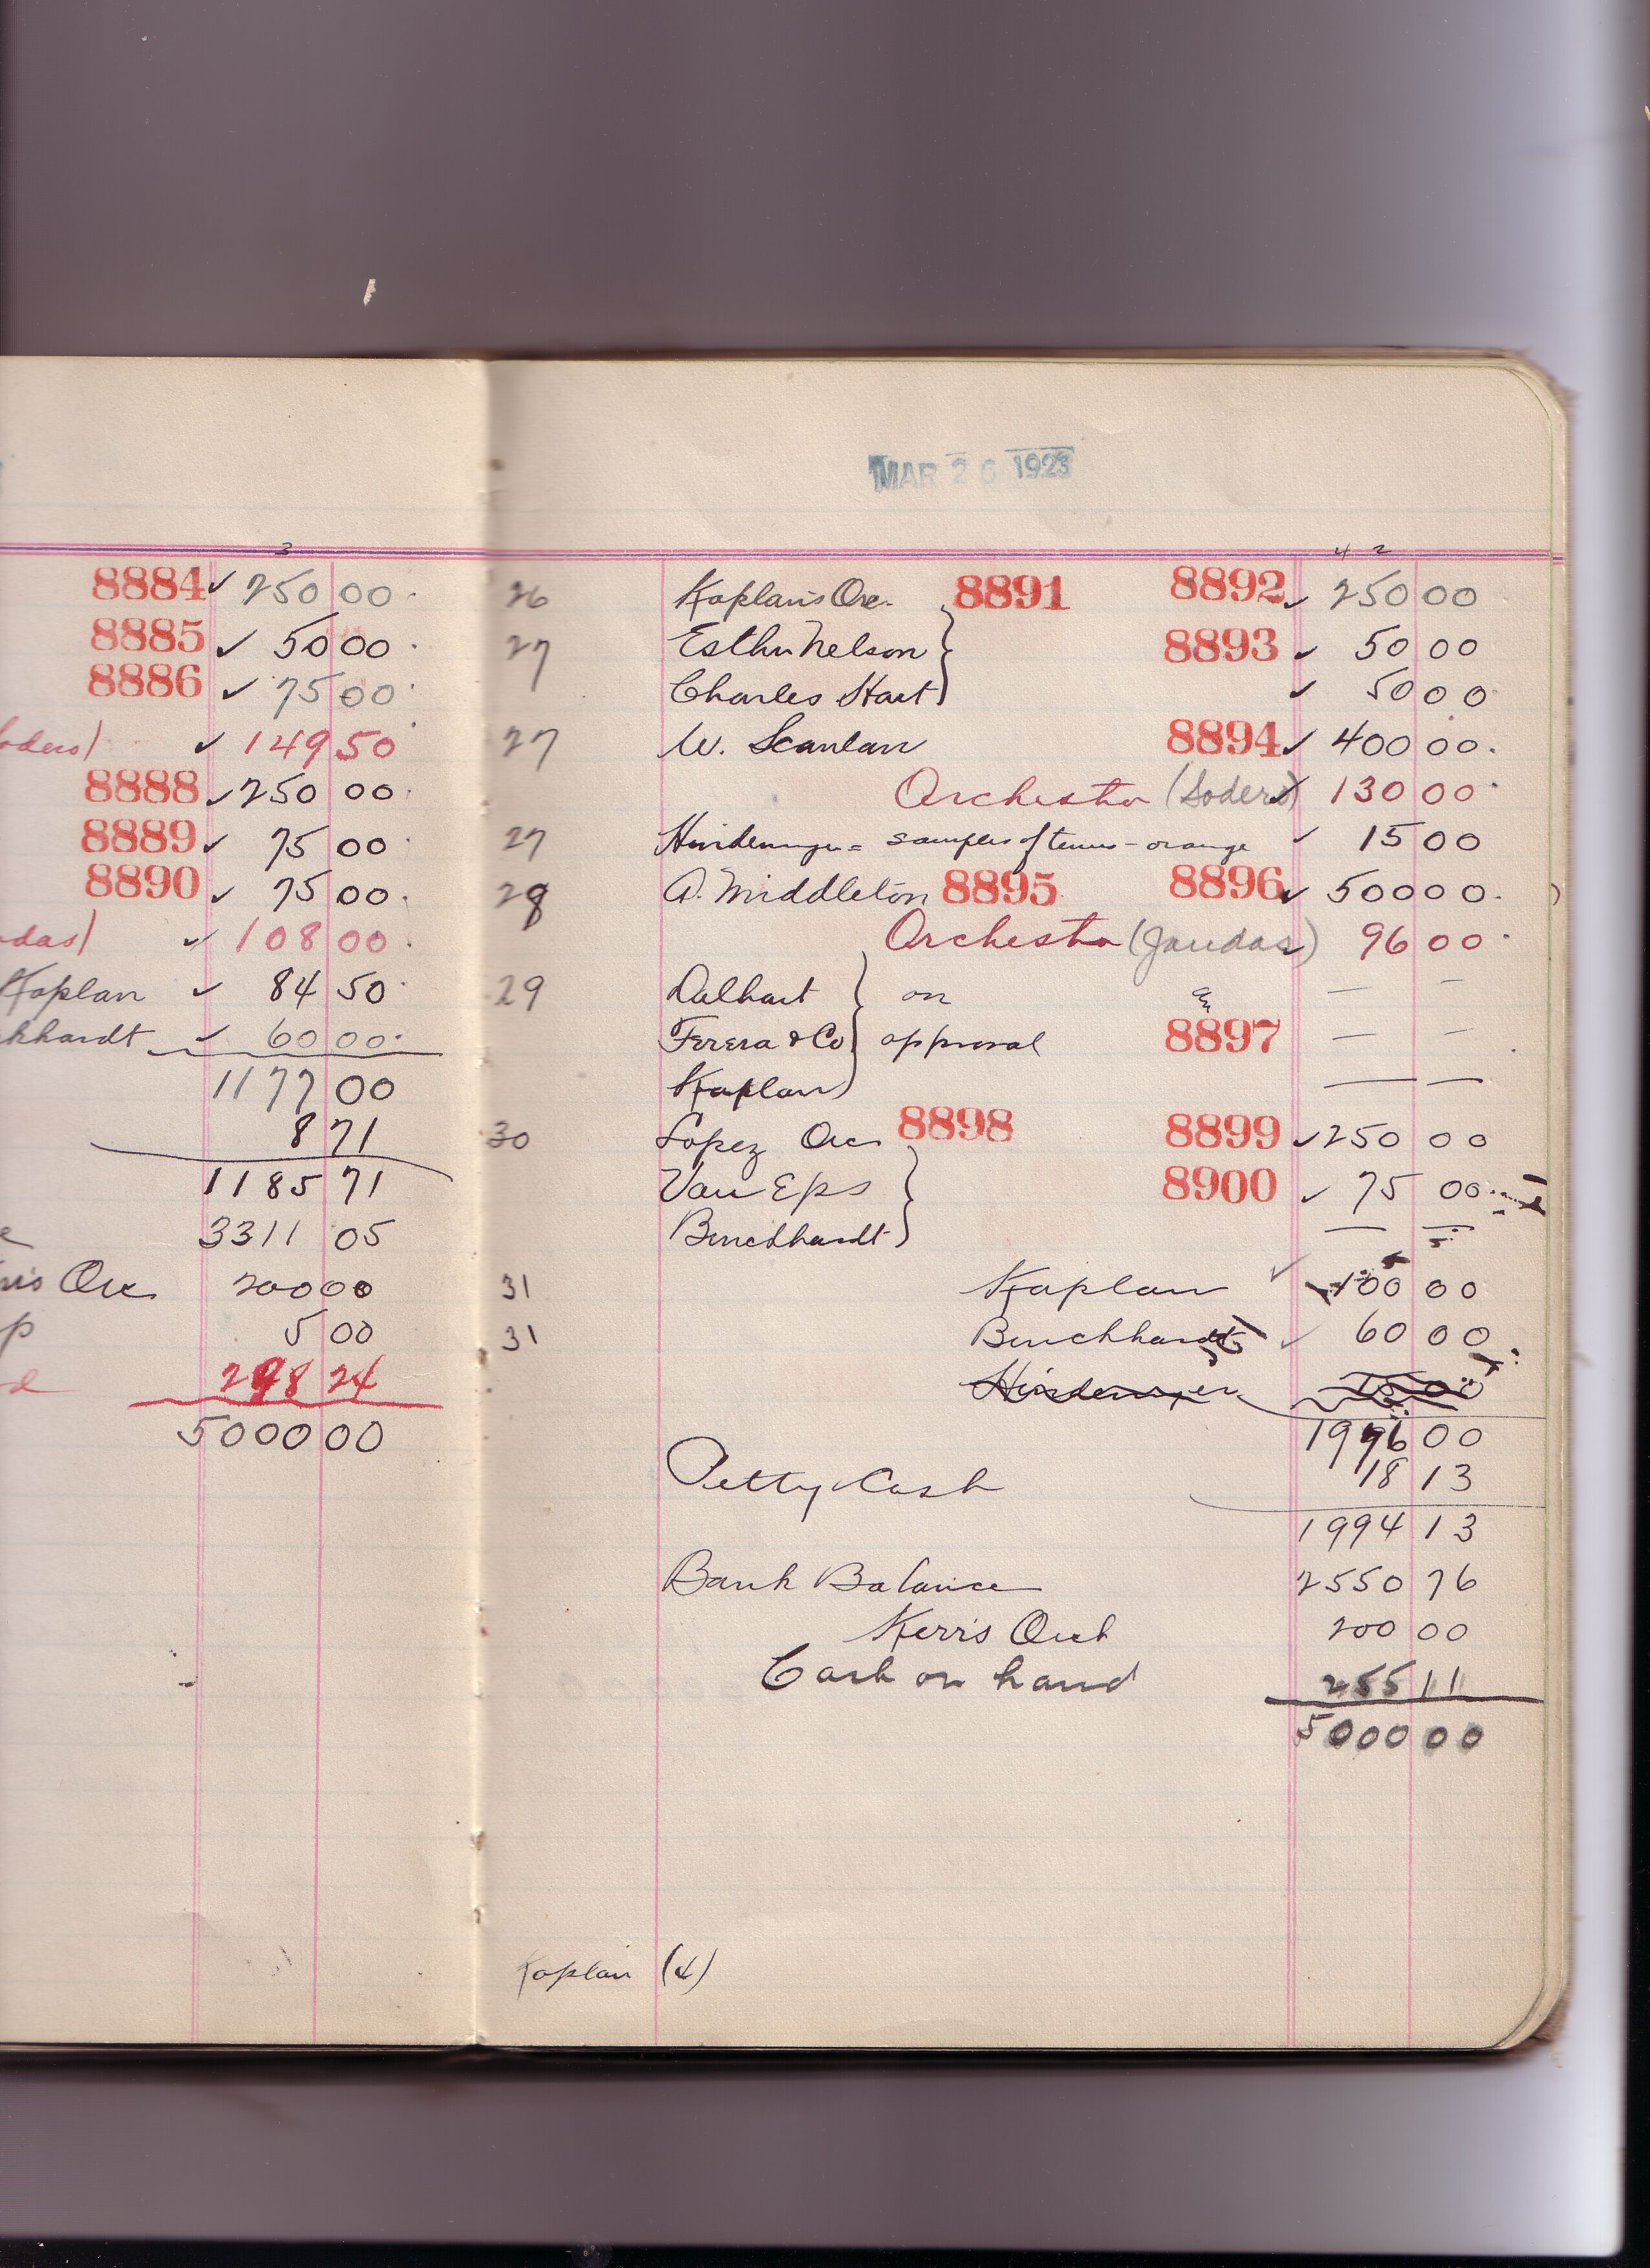 3
8884 ✓ 250 00
8885 ✓ 50 00
8886 ✓ 75 00
oders) ✓ 149 50
8888 ✓ 250 00
8889 ✓ 75 00
8890 ✓ 75 00
das) ✓ 108 00
Kaplan ✓ 84 50
khardt ✓ 60 00
1177 00
8 71
1185 71
3311 05
Orc 200 00
p 5 00
298 24
5000 00
MAR 26 1923
4 2
26 Kaplan's Orc. 8891 8892 ✓ 250 00
27 Esther Nelson } 8893 ✓ 50 00
Charles Hart } ✓ 50 00
27 W. Scanlan 8894 ✓ 400 00
Orchestra (Soders) ✓ 130 00
27 samples of tenus - orange ✓ 15 00
28 A. Middleton 8895 8896 ✓ 500 00
Orchestra (Jaudas) 96 00
29 Dalhart } on — —
Ferera & Co } approval 8897 — —
Kaplan } — —
30 Lopez Orc 8898 8899 ✓ 250 00
Van Eps } 8900 ✓ 75 00
Burckhardt } — —
31 Kaplan ✓ 100 00
31 Burckhardt ✓ 60 00
1976 00
Petty Cash 18 13
1994 13
Bank Balance 2550 76
Kerr's Orch 200 00
Cash on hand 255 11
5000 00
Kaplan (4)